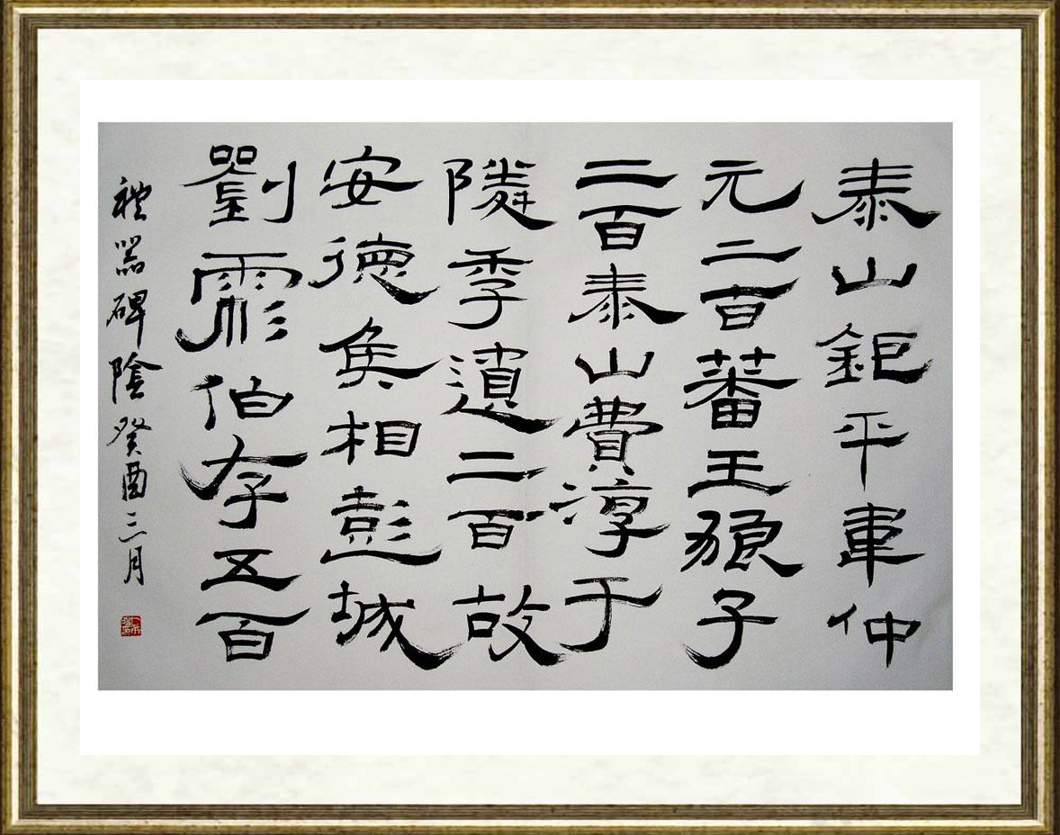 泰山鉅平韋仲
元二百蕃王狼子
二百泰山費淳于
隣季遺二百故
安德矦相彭城
劉彪伯存五百
禮器碑陰癸酉三月